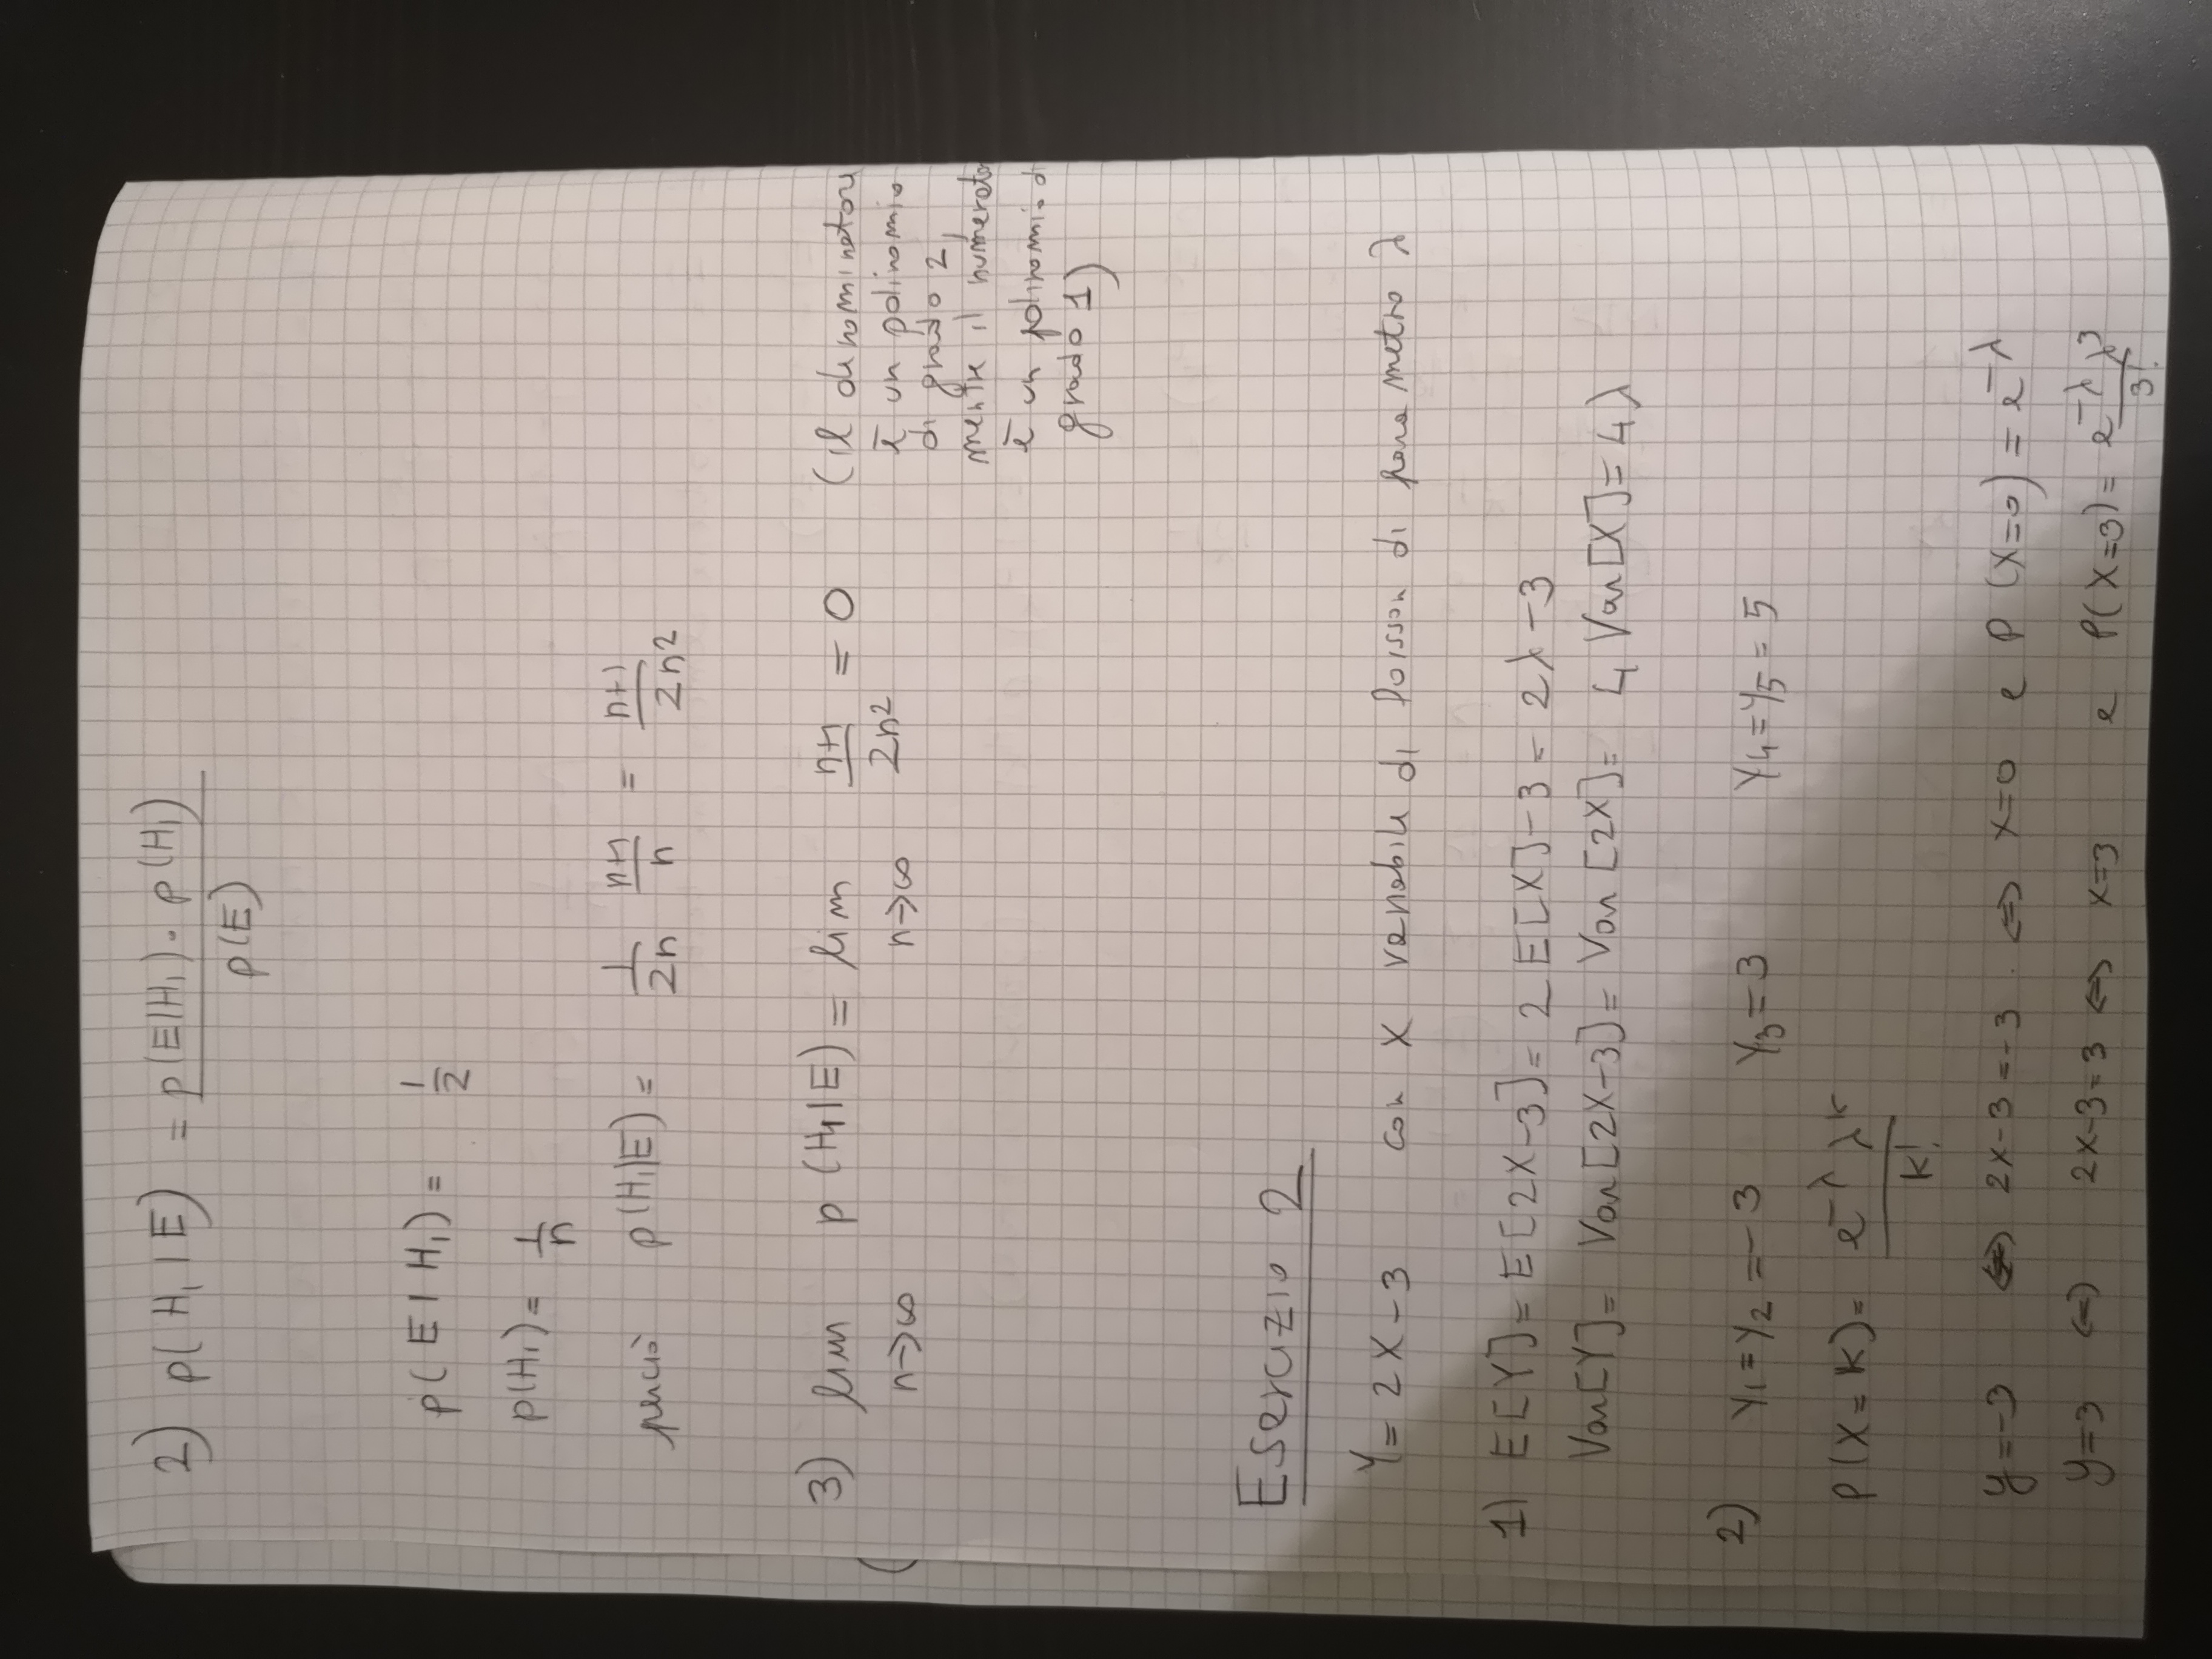 2) p(H₁|E) = p(E|H₁)·p(H₁) / p(E)
p(E|H₁) = 1/2
p(H₁) = 1/n
perciò p(H₁|E) = 1/2n n+1/n = n+1/2n²
3) lim n→∞ p(H₁|E) = lim n→∞ n+1/2n² = 0 (il denominatore
è un polinomio
di grado 2,
mentre il numerato
è un polinomio di
grado 1)
Esercizio 2
Y = 2X-3 con X variabile di Poisson di parametro λ
1) E[Y] = E[2X-3] = 2E[X]-3 = 2λ-3
Var[Y] = Var[2X-3] = Var[2X] = 4 Var[X] = 4λ
2) Y₁ = Y₂ = -3 Y₃ = 3 Y₄ = Y₅ = 5
P(X=k) = e^-λ λ^k / k!
y=-3 ⇔ 2x-3=-3 ⇔ x=0 e P(X=0) = e^-λ
y=3 ⇔ 2x-3=3 ⇔ x=3 e P(X=3) = e^-λ λ³ / 3!